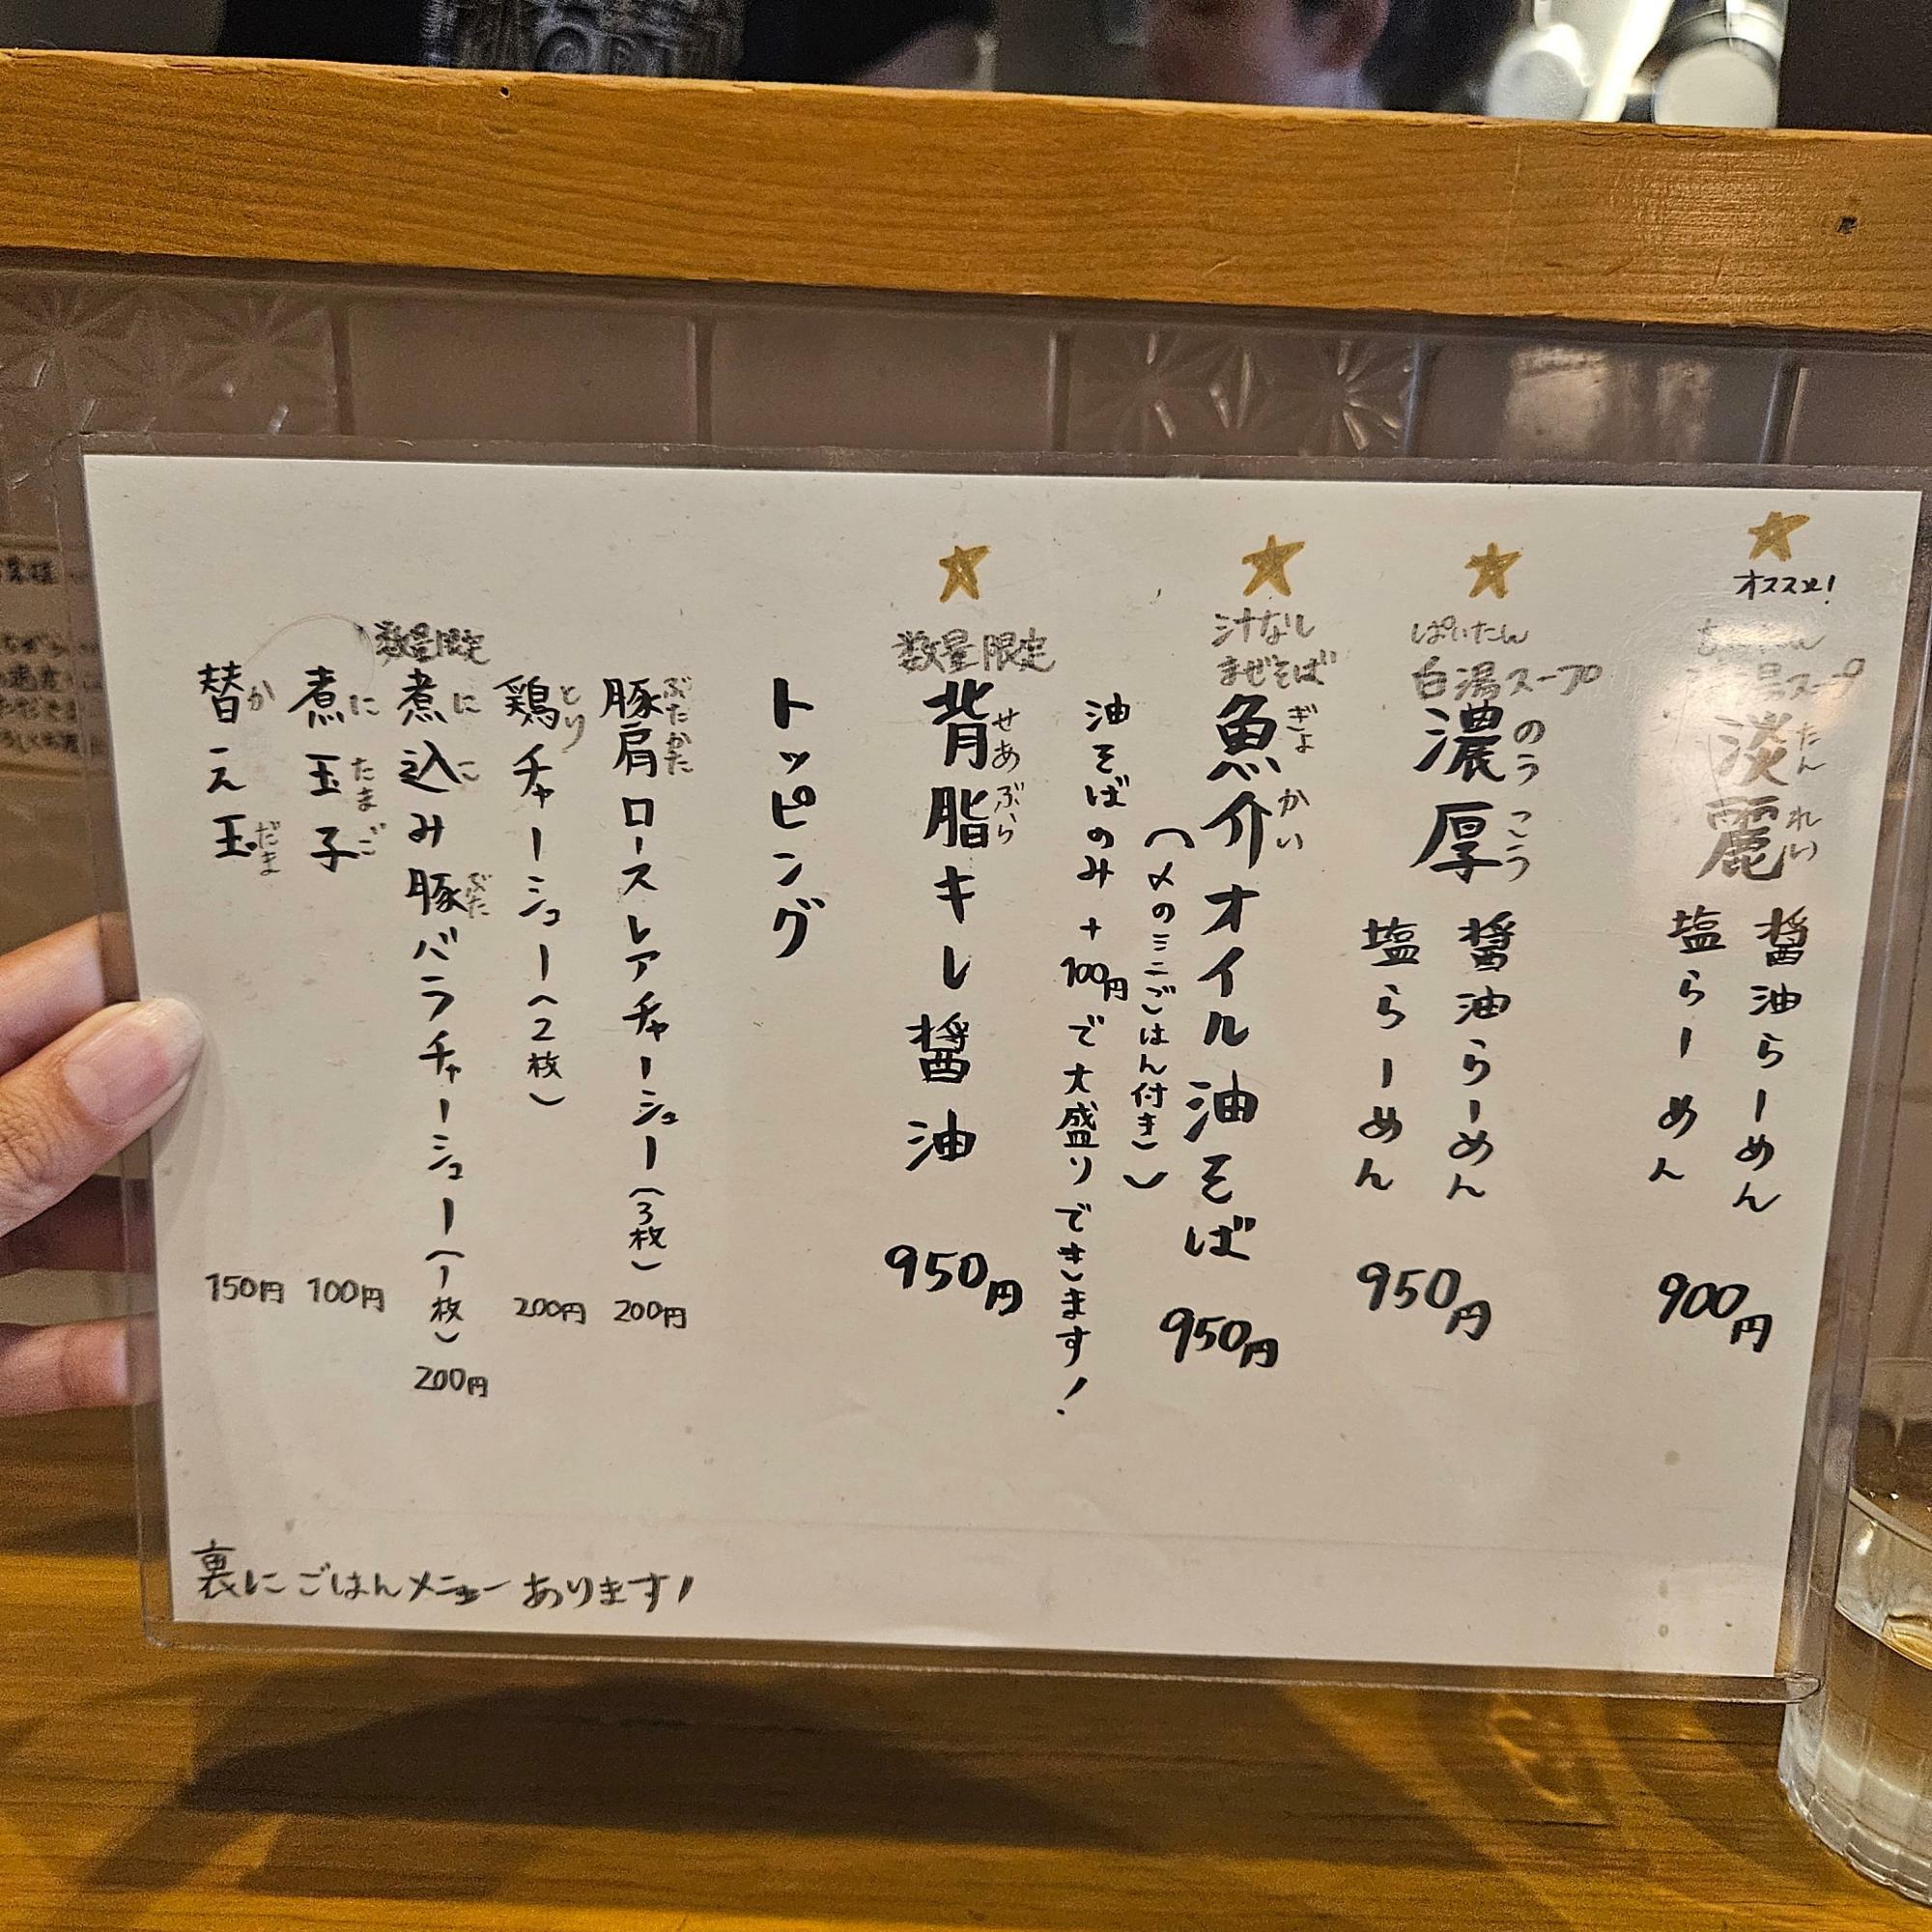 オススメ！
スープ
淡麗
たんれい
醤油らーめん
塩らーめん
900円
ぱいたん
白湯スープ
濃厚
のうこう
醤油らーめん
塩らーめん
950円
汁なし
まぜそば
魚介オイル油そば
ぎょかい
950円
（〆のミニごはん付き）
油そばのみ＋100円で大盛りできます！
数量限定
背脂キレ醤油
せあぶら
950円
トッピング
豚肩ロースレアチャーシュー（3枚）
ぶたかた
200円
鶏チャーシュー（2枚）
とり
200円
数量限定
煮込み豚バラチャーシュー（1枚）
にこぶた
200円
煮玉子
にたまご
100円
替え玉
かだま
150円
裏にごはんメニューあります！